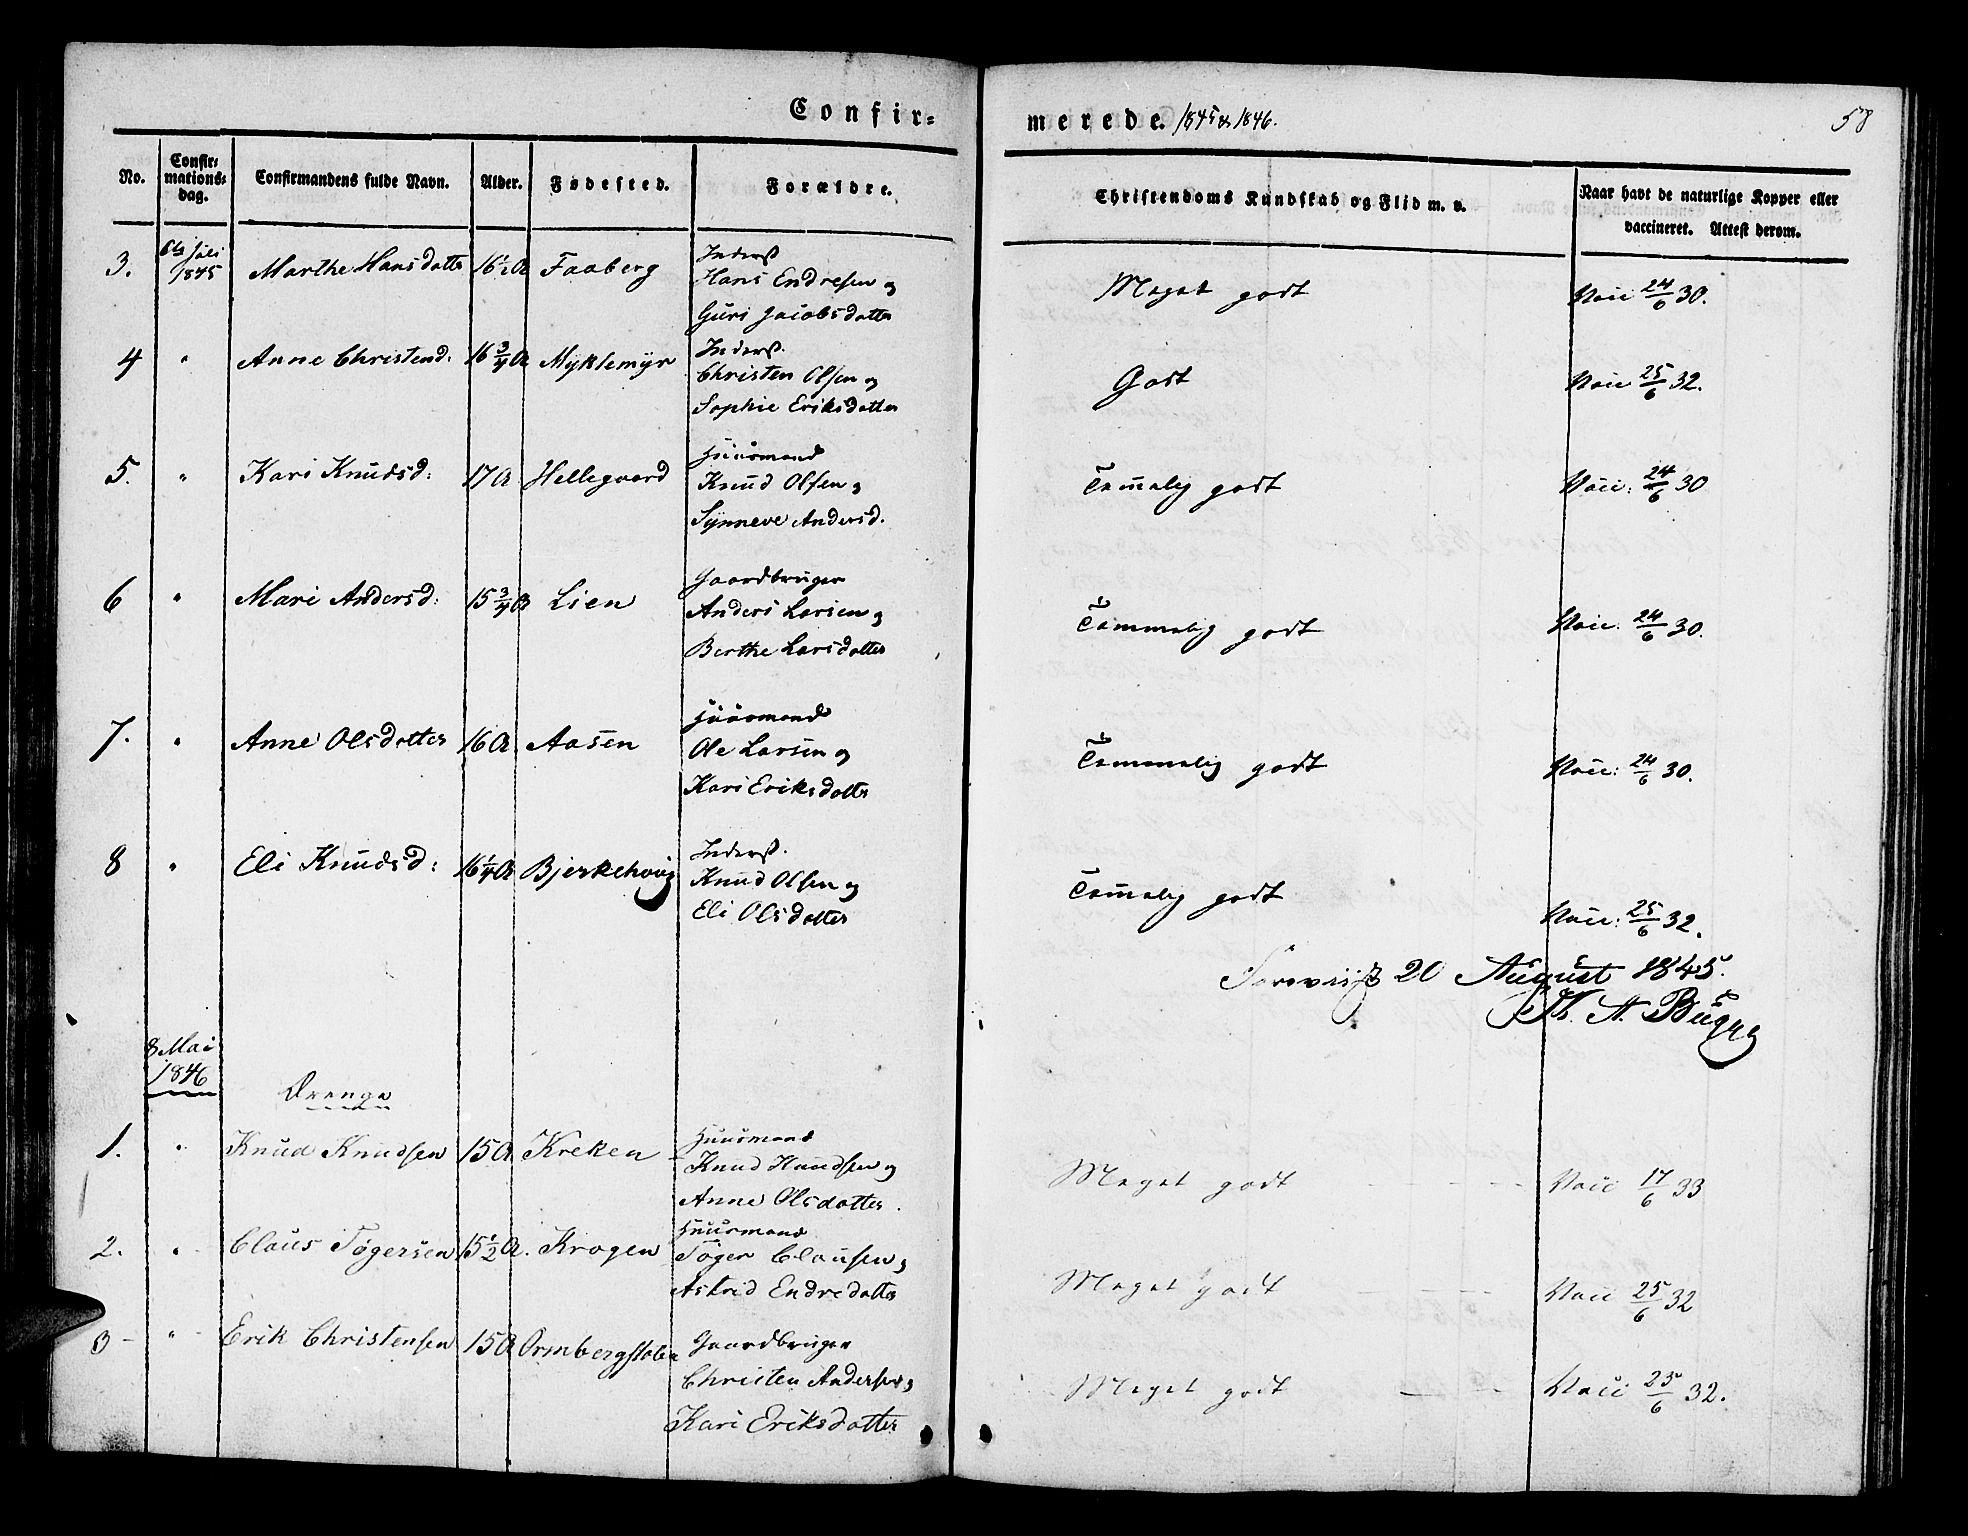 Confir=
merede. 1845 & 1846.
58
No.
Confir=
mations=
dag.
Confirmandens fulde Navn.
Alder.
Fødested.
Forældre.
Christendoms Kundskab og Flid m. v.
Naar havt de naturlige Kopper eller
vaccineret. Attest derom.
3. 6te Juli 1845 Marthe Hansdatter 16½ A Faaberg
Inderst
Hans Endresen og
Guri Jacobsdatter
Meget godt Vacc 24/6 30.
4 " Anne Christend: 16¾ A Myklemyr
Inderst.
Christen Olsen og
Sophie Eriksdatter
Godt Vacc 25/6 32.
5. " Kari Knudsd: 17 A Hellegaard
Huusmand
Knud Olsen og
Synneve Andersd.
Tem̄elig godt Vacc: 24/6 30
6 " Mari Andersd: 15¾ A Lien
Gaardbruger
Anders Larsen og
Berthe Larsdatter
Temmelig godt Vacc: 24/6 30.
7. " Anne Olsdatter 16 A Aasen
Huusmand
Ole Larsen og
Kari Eriksdatter
Temmelig godt Vacc: 24/6 30.
8 " Eli Knudsd: 16¼ A Bjerkehoug
Inderst.
Knud Olsen og
Eli Olsdatter
Tem̄elig godt Vacc: 25/6 32.
20 August 1845.
Th. A. Bugge
8 Mai
1846
Drenge
1. " Knud Knudsen 15 A Kreken
Huusmand
Knud Knudsen og
Anne Olsdatter.
Meget godt Vacc 17/6 33
2. " Claus Tøgersen 15½ A. Krogen
Huusmand
Tøger Clausen og
Astrid Endredatter
Meget godt Vacc 25/6 32
3 " Erik Christensen 15 A Ormbergstølen
Gaardbruger
Christen Andersen og
Kari Eriksdatter
Meget godt Vacc 25/6 32.